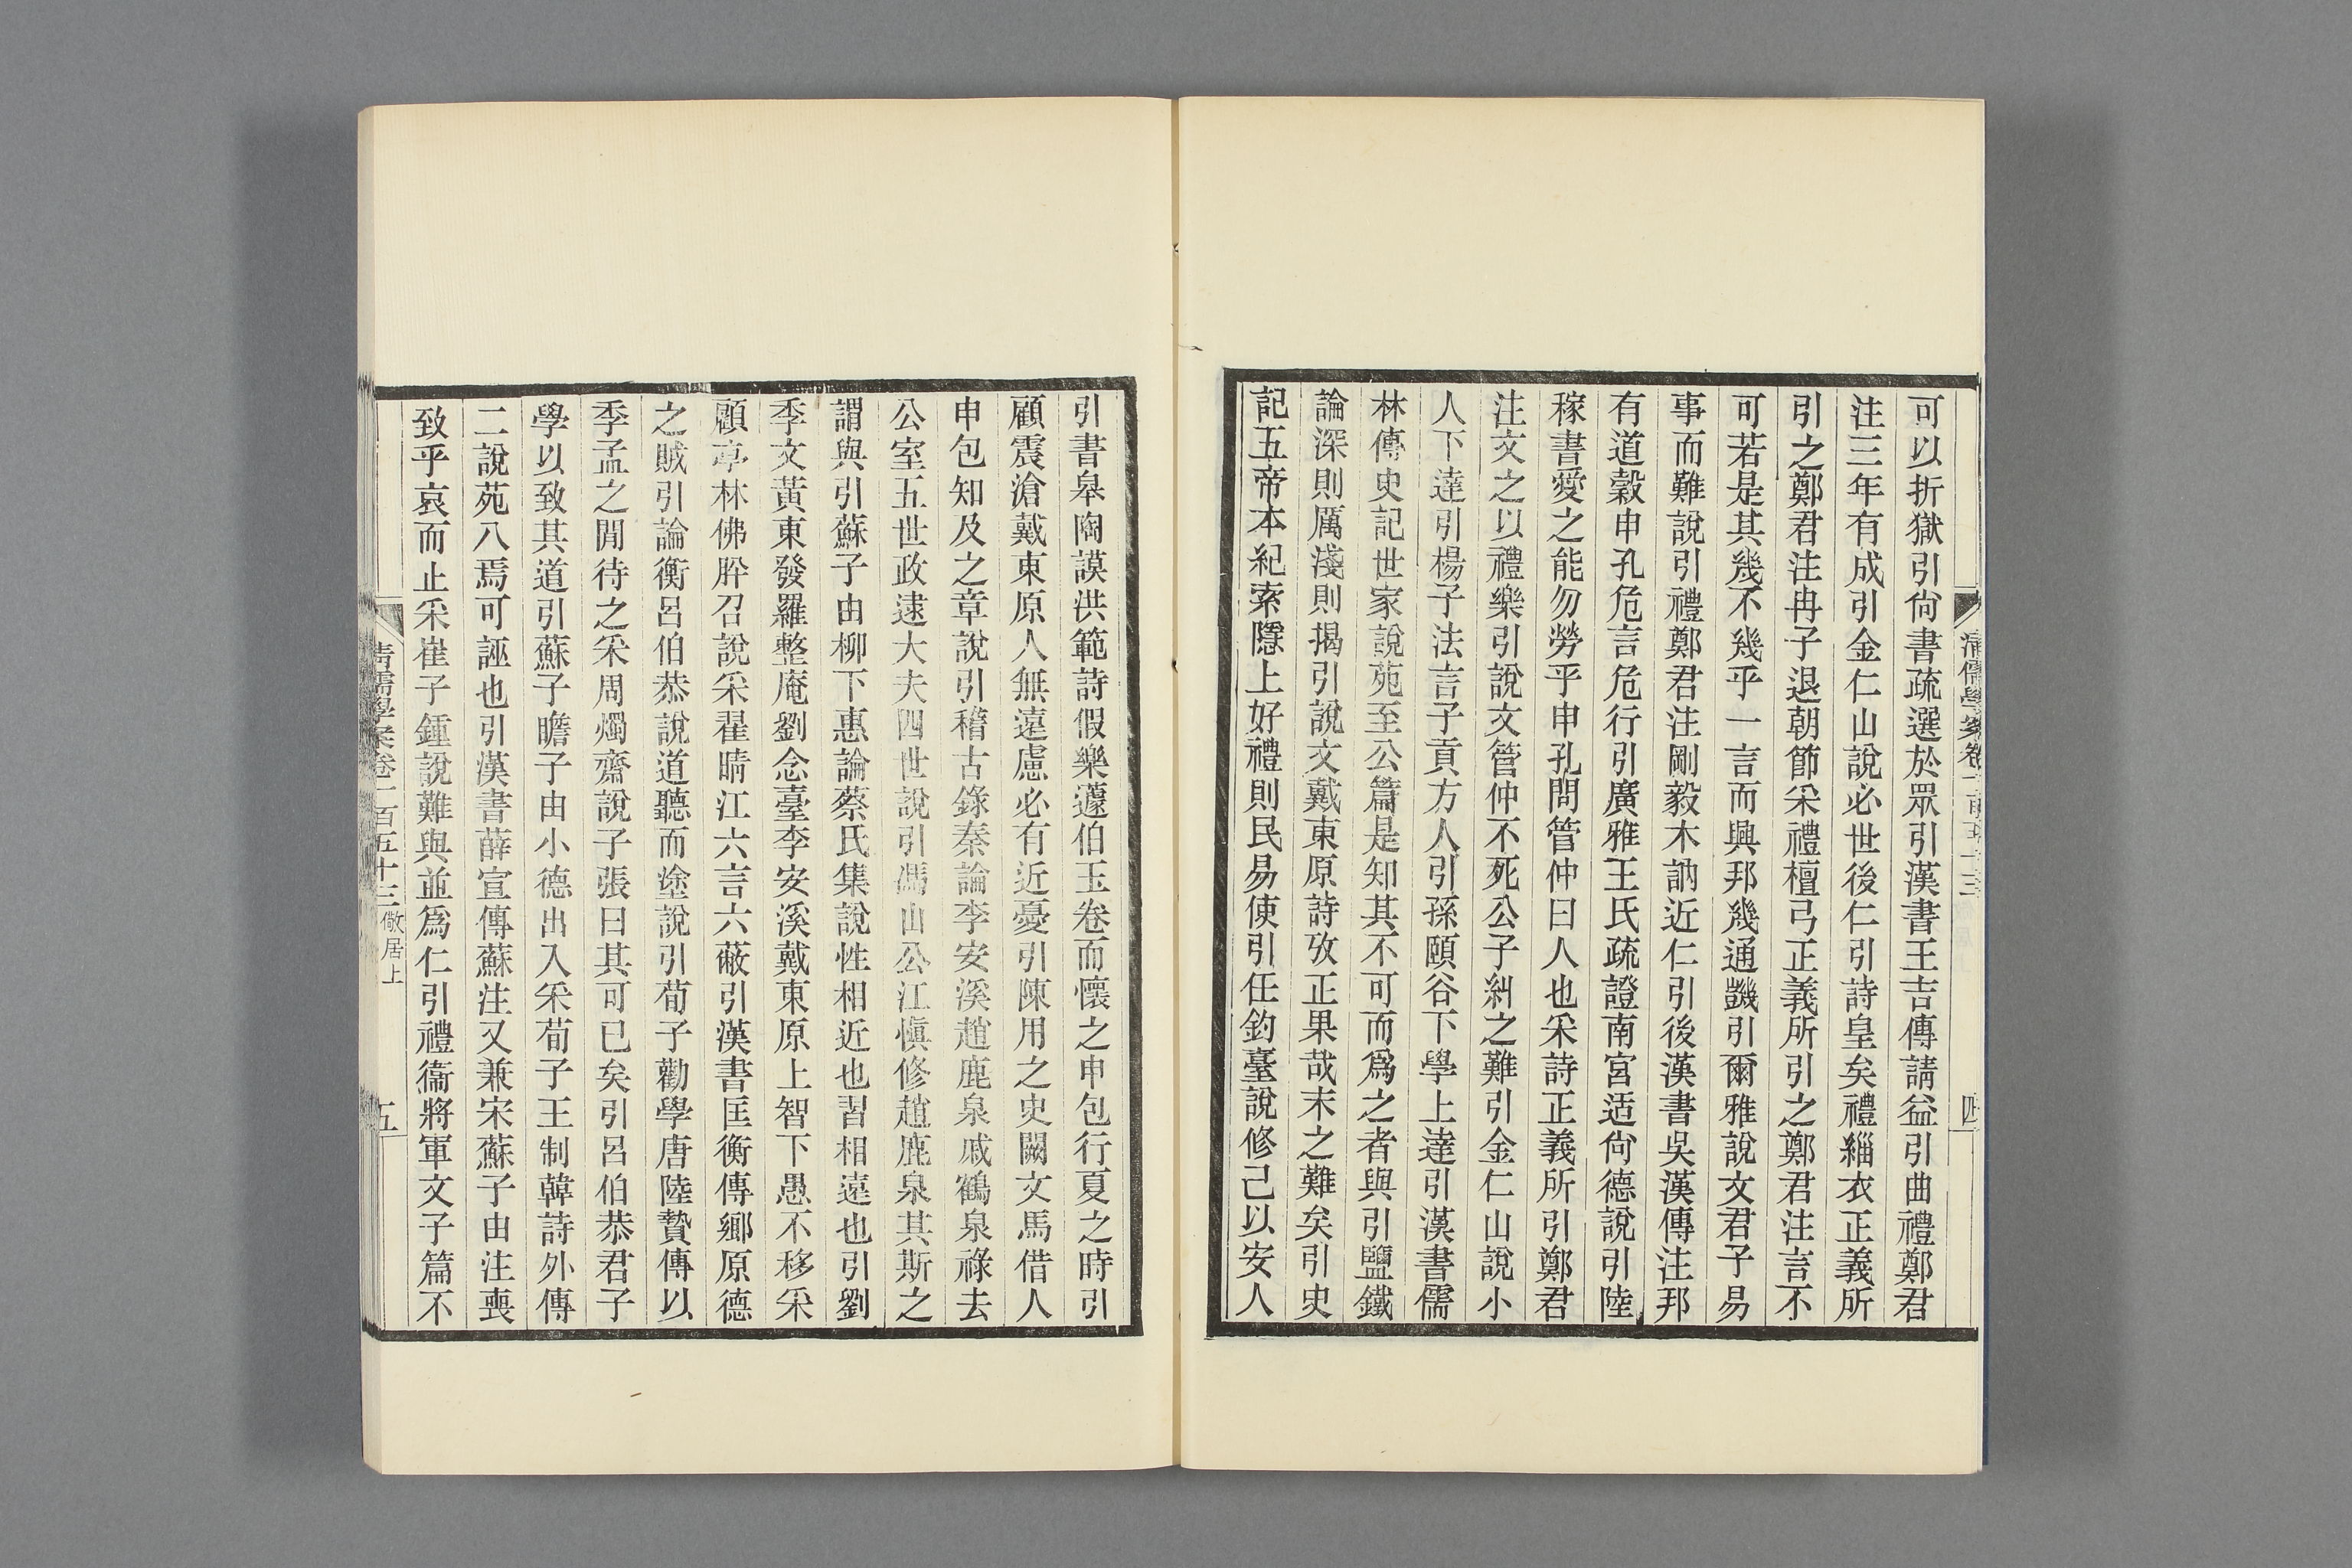 可以折獄引尙書疏選於眾引漢書王吉傳請益引曲禮鄭君
注三年有成引金仁山說必世後仁引詩皇矣禮緇衣正義所
引之鄭君注冉子退朝節采禮檀弓正義所引之鄭君注言不
可若是其幾不幾乎一言而興邦幾通譏引爾雅說文君子易
事而難說引禮鄭君注剛毅木訥近仁引後漢書吳漢傳注邦
有道穀申孔危言危行引廣雅王氏疏證南宮适尙德說引陸
稼書愛之能勿勞乎申孔問管仲曰人也采詩正義所引鄭君
注文之以禮樂引說文管仲不死公子糾之難引金仁山說小
人下達引楊子法言子貢方人引孫頤谷下學上達引漢書儒
林傳史記世家說苑至公篇是知其不可而爲之者與引鹽鐵
論深則厲淺則揭引說文戴東原詩攷正果哉末之難矣引史
記五帝本紀索隱上好禮則民易使引任釣臺說修己以安人
四
引書皋陶謨洪範詩假樂蘧伯玉卷而懷之申包行夏之時引
顧震滄戴東原人無遠慮必有近憂引陳用之史闕文馬借人
申包知及之章說引稽古錄秦論李安溪趙鹿泉戚鶴泉祿去
公室五世政逮大夫四世說引馮山公江愼修趙鹿泉其斯之
謂與引蘇子由柳下惠論蔡氏集說性相近也習相遠也引劉
季文黃東發羅整庵劉念臺李安溪戴東原上智下愚不移采
顧亭林佛肸召說采翟晴江六言六蔽引漢書匡衡傳鄉原德
之賊引論衡呂伯恭說道聽而塗說引荀子勸學唐陸贄傳以
季孟之閒待之采周燭齋說子張曰其可已矣引呂伯恭君子
學以致其道引蘇子瞻子由小德出入采荀子王制韓詩外傳
二說苑八焉可誣也引漢書薛宣傳蘇注又兼宋蘇子由注喪
致乎哀而止采崔子鍾說難與並爲仁引禮衞將軍文子篇不
清儒學案卷一百五十三 儆居上
五